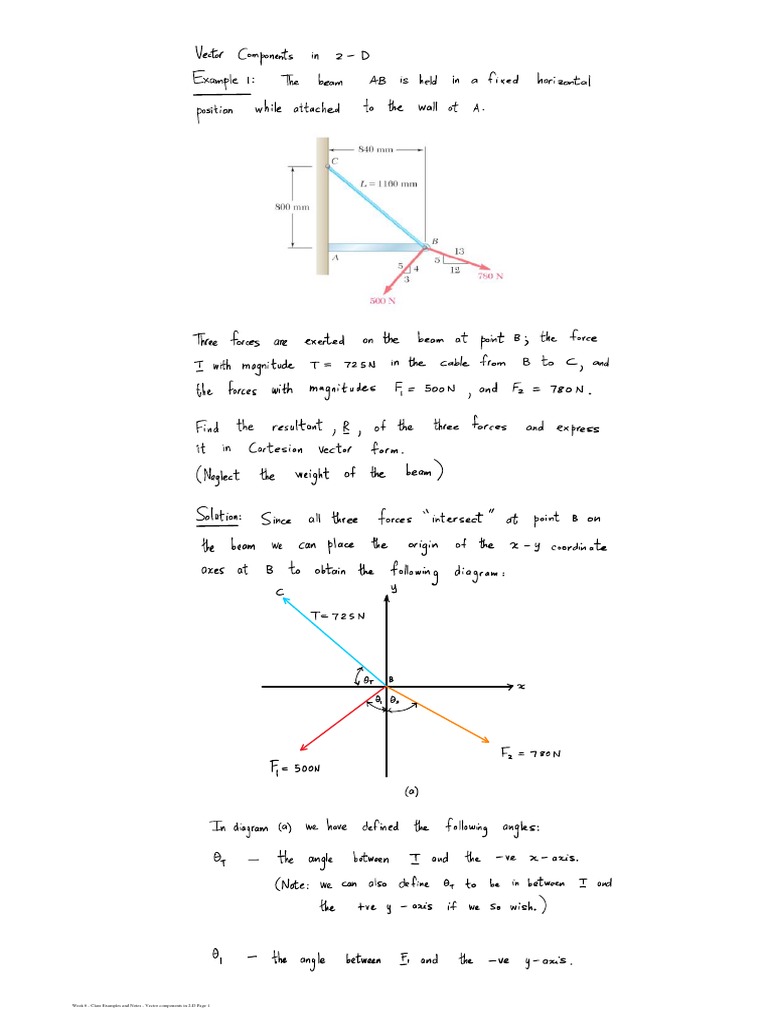 Vector Components in 2-D
Example 1: The beam AB is held in a fixed horizontal
position while attached to the wall at A.
840 mm
C
L = 1160 mm
800 mm
B
A
13
5
12
780 N
5
4
3
500 N
Three forces are exerted on the beam at point B; the force
T with magnitude T = 725N in the cable from B to C, and
the forces with magnitudes F1 = 500N, and F2 = 780N.
Find the resultant, R, of the three forces and express
it in Cartesian vector form.
(Neglect the weight of the beam)
Solution: Since all three forces "intersect" at point B on
the beam we can place the origin of the x-y coordinate
axes at B to obtain the following diagram:
C
y
T=725N
θT
B
x
θ1
θ2
F1 = 500N
F2 = 780N
(a)
In diagram (a) we have defined the following angles:
θT — the angle between T and the -ve x-axis.
(Note: we can also define θT to be in between T and
the +ve y-axis if we so wish.)
θ1 — the angle between F1 and the -ve y-axis.
Week 6 - Class Examples and Notes - Vector components in 2-D Page 1